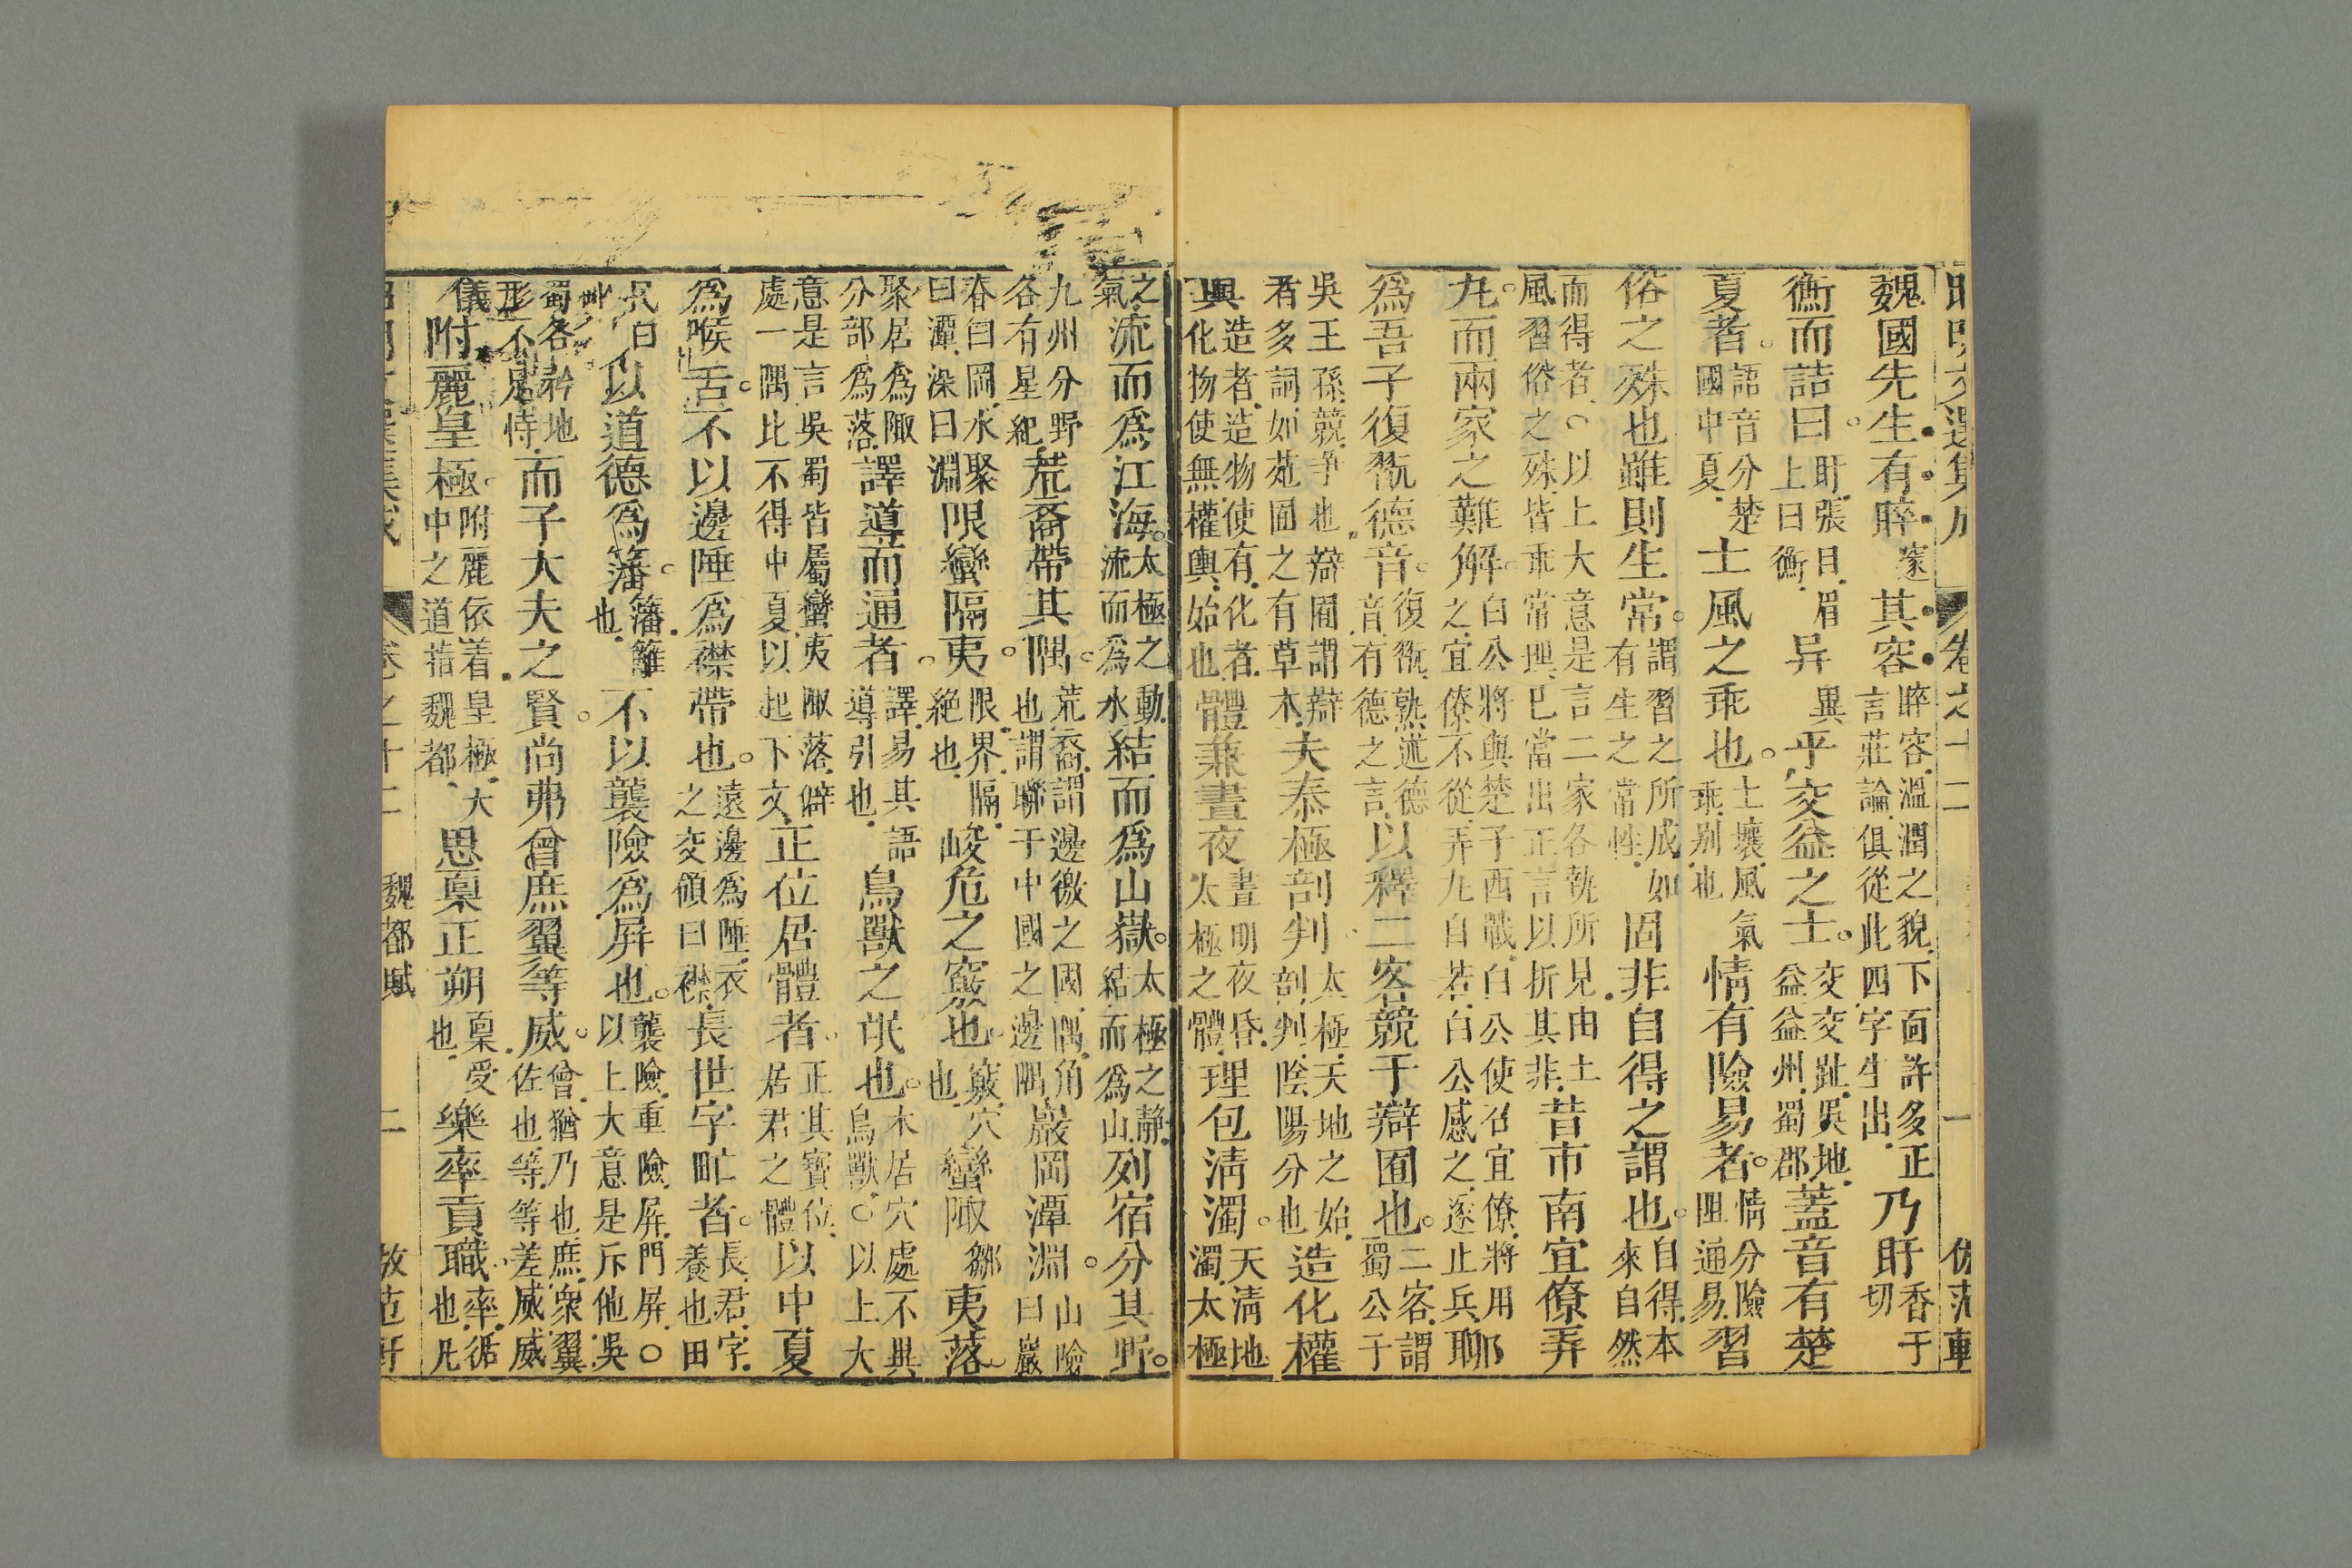 魏國先生有睟睟音邃其容睟容溫潤之貌下面許多正言莊論俱從此四字生出乃盱香于切
衡而詰曰盱張目眉上曰衡异異乎交益之士交交趾吳地益益州蜀郡蓋音有楚
夏者語音分楚國中夏士風之乖也土壤風氣乖别也情有險易者情分險阻通易習
俗之殊也雖則生常謂習之所成如有生之常性固非自得之謂也自得本來自然
而得者○以上大意是言二家各執所見由土風習俗之殊皆乖常理已當出正言以折其非昔市南宜僚弄
丸而兩家之難解白公將與楚子西戰白公使召宜僚將用之宜僚不從弄丸自若白公感之遂止兵聊
爲吾子復翫德音復翫熟述德音有德之言以釋二客競于辯囿也二客謂蜀公子
吳王孫競爭也辯囿謂辯者多詞如苑囿之有草木夫泰極剖判太極天地之始剖判陰陽分也造化權
輿造者造物使有化者化物使無權輿始也體兼晝夜晝明夜昏太極之體理包淸濁天淸地濁太極
之氣流而爲江海太極之動流而爲水結而爲山嶽太極之靜結而爲山列宿分其野
九州分野各有星紀荒裔帶其隅荒裔謂邊徼之國隅角也謂聯于中國之邊隅巖岡潭淵山險曰巖
春曰岡水聚曰潭深曰淵限蠻隔夷限界隔絕也峻危之竅也竅穴也蠻陬鄒夷落
聚居爲陬分部爲落譯導而通者譯易其語導引也鳥獸之氓也木居穴處不異鳥獸○以上大
意是言吳蜀皆屬蠻夷陬落僻處一隅比不得中夏以起下文正位居體者正其寶位居君之體以中夏
爲喉舌不以邊陲爲襟帶也遠邊爲陲衣之交領曰襟長世字甿者長君字養也田
民曰甿以道德爲藩藩籬也不以襲險爲屏也襲險重險屏門屏○以上大意是斥他吳
蜀各矜地形不足恃而子大夫之賢尚弗曾庶翼等威曾猶乃也庶衆翼佐也等等差威威
儀附麗皇極附麗依着皇極大中之道指魏都思稟正朔稟受也樂率貢職率循也凡
卷之十二 魏都賦 二